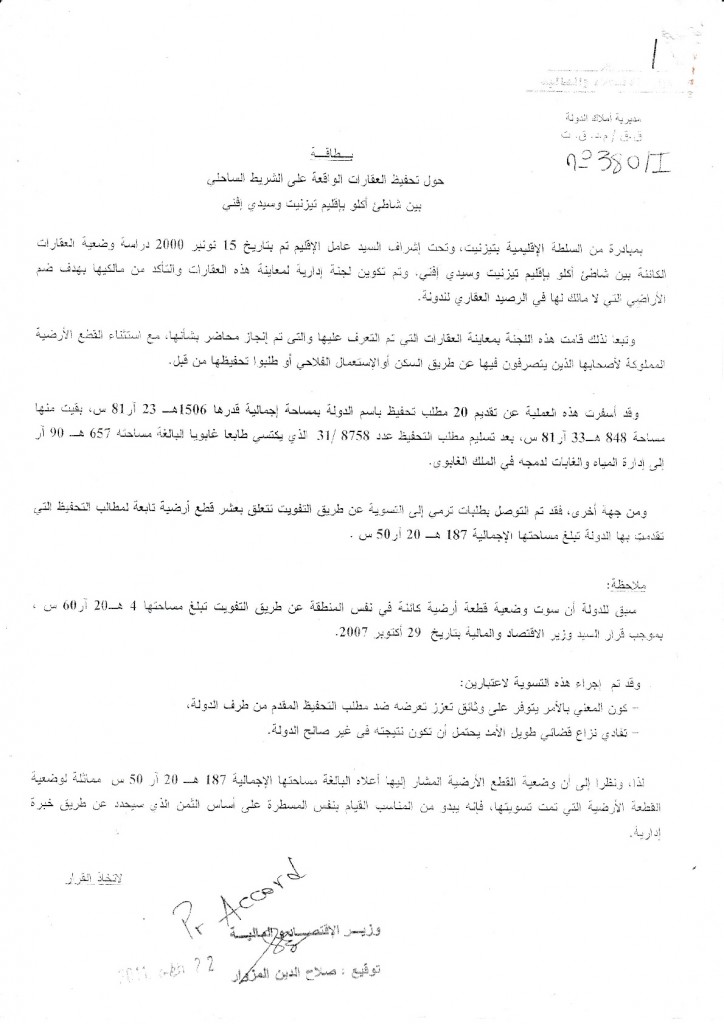 مديرية أملاك الدولة
ق.ق / م.د. ق. ت
n° 380/I
بـطاقـــة
حول تحفيظ العقارات الواقعة على الشريط الساحلي
بين شاطئ أكلو بإقليم تيزنيت وسيدي إفني
بمبادرة من السلطة الإقليمية بتيزنيت، وتحت إشراف السيد عامل الإقليم تم بتاريخ 15 نونبر 2000 دراسة وضعية العقارات
الكائنة بين شاطئ أكلو بإقليم تيزنيت وسيدي إفني. وتم تكوين لجنة إدارية لمعاينة هذه العقارات والتأكد من مالكيها بهدف ضم
الأراضي التي لا مالك لها في الرصيد العقاري للدولة.
وتبعا لذلك قامت هذه اللجنة بمعاينة العقارات التي تم التعرف عليها والتي تم إنجاز محاضر بشأنها، مع استثناء القطع الأرضية
المملوكة لأصحابها الذين يتصرفون فيها عن طريق السكن أوالإستعمال الفلاحي أو طلبوا تحفيظها من قبل.
وقد أسفرت هذه العملية عن تقديم 20 مطلب تحفيظ باسم الدولة بمساحة إجمالية قدرها 1506هــ 23 آر81 س، بقيت منها
مساحة 848 هــ33 آر81 س، بعد تسليم مطلب التحفيظ عدد 8758 /31 الذي يكتسي طابعا غابويا البالغة مساحته 657 هــ 90 آر
إلى إدارة المياه والغابات لدمجه في الملك الغابوي.
ومن جهة أخرى، فقد تم التوصل بطلبات ترمى إلى التسوية عن طريق التفويت تتعلق بعشر قطع أرضية تابعة لمطالب التحفيظ التي
تقدمت بها الدولة تبلغ مساحتها الإجمالية 187 هــ 20 آر50 س .
ملاحظة:
سبق للدولة أن سوت وضعية قطعة أرضية كائنة في نفس المنطقة عن طريق التفويت تبلغ مساحتها 4 هــ20 آر60 س ،
بموجب قرار السيد وزير الاقتصاد والمالية بتاريخ 29 أكتوبر 2007.
وقد تم إجراء هذه التسوية لاعتبارين:
- كون المعني بالأمر يتوفر على وثائق تعزز تعرضه ضد مطلب التحفيظ المقدم من طرف الدولة،
- تفادي نزاع قضائي طويل الأمد يحتمل أن تكون نتيجته في غير صالح الدولة.
لذا، ونظرا إلى أن وضعية القطع الأرضية المشار إليها أعلاه البالغة مساحتها الإجمالية 187 هــ 20 آر 50 س مماثلة لوضعية
القطعة الأرضية التي تمت تسويتها، فإنه يبدو من المناسب القيام بنفس المسطرة على أساس الثمن الذي سيحدد عن طريق خبرة
إدارية.
لاتخاذ القرار
Pr Accord
وزيـر الإقتصـاد والماليـــة
توقيع : صلاح الدين المزوار